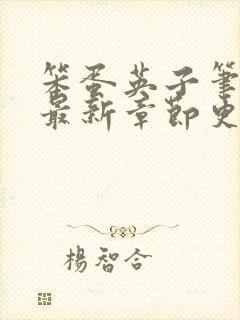 笨蛋英子笔
最新章節史
楊智合